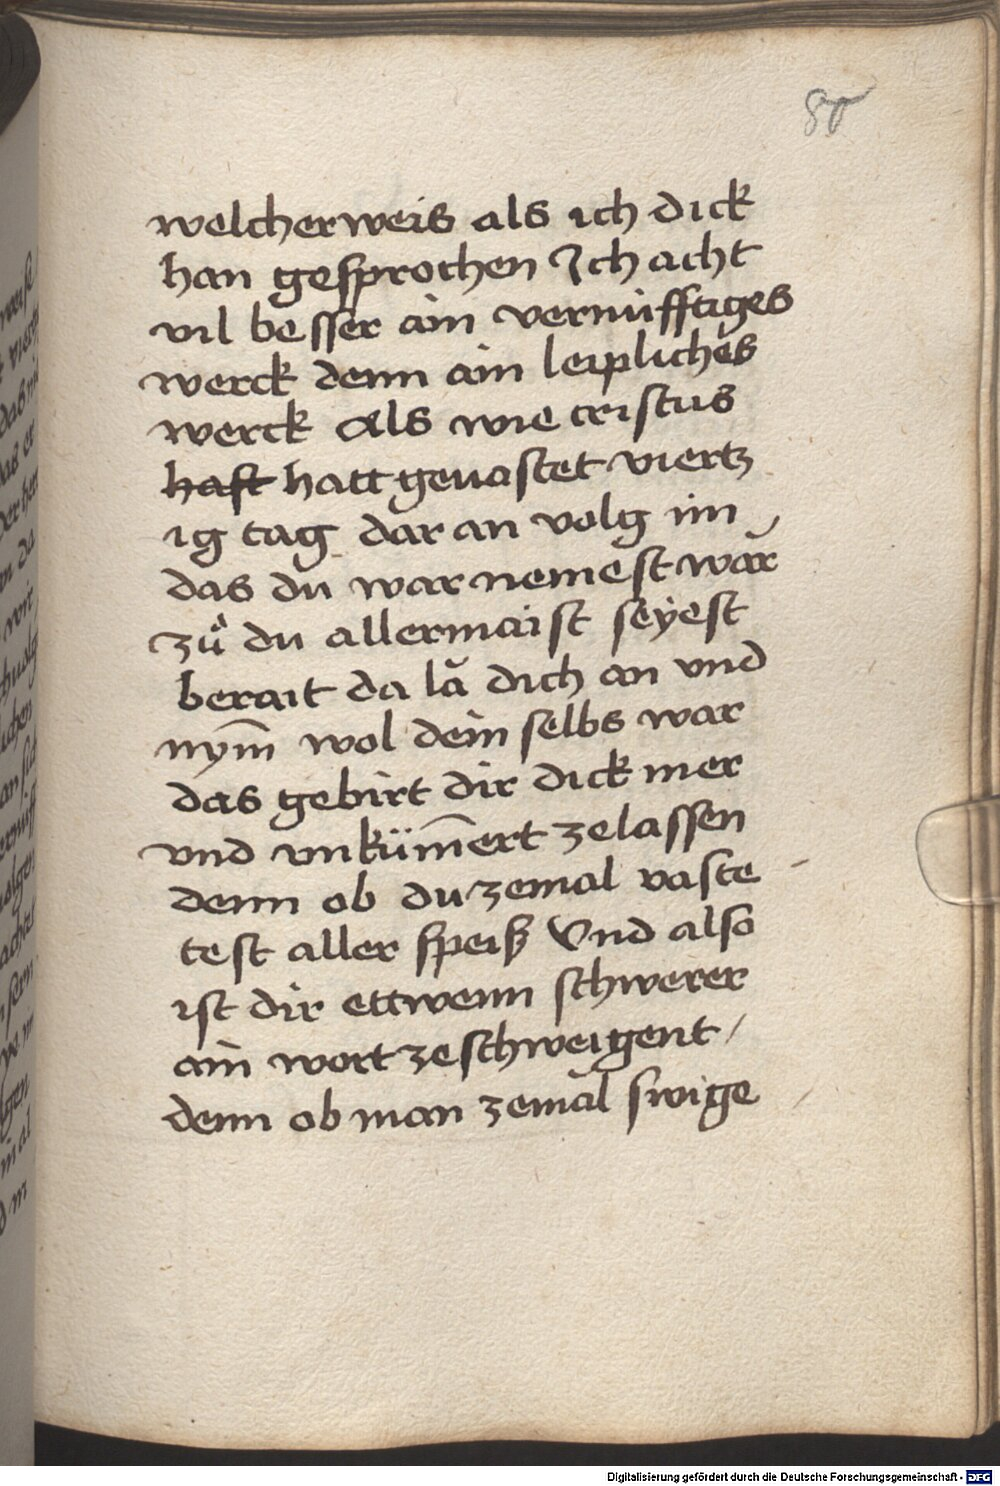 80
welcher weis als ich dick
han gesprochen Ich acht
vil besser ain vernúfftiges
werck denn ain leipliches
werck Als wie cristus
haft hatt geuastet viertz
ig tag dar an volg im
das du war nemest war
zů du allermaist seyest
berait da lǎ dich an vnd
nym̄ wol dein selbs war
das gebirt dir dick mer
vnd vnküm̄ert zelassen
denn ob du zemal vaste
test aller speiß Vnd also
ist dir ettwenn schwerer
ain wort zeschweigent /
denn ob man zemal swige
Digitalisierung gefördert durch die Deutsche Forschungsgemeinschaft - DFG